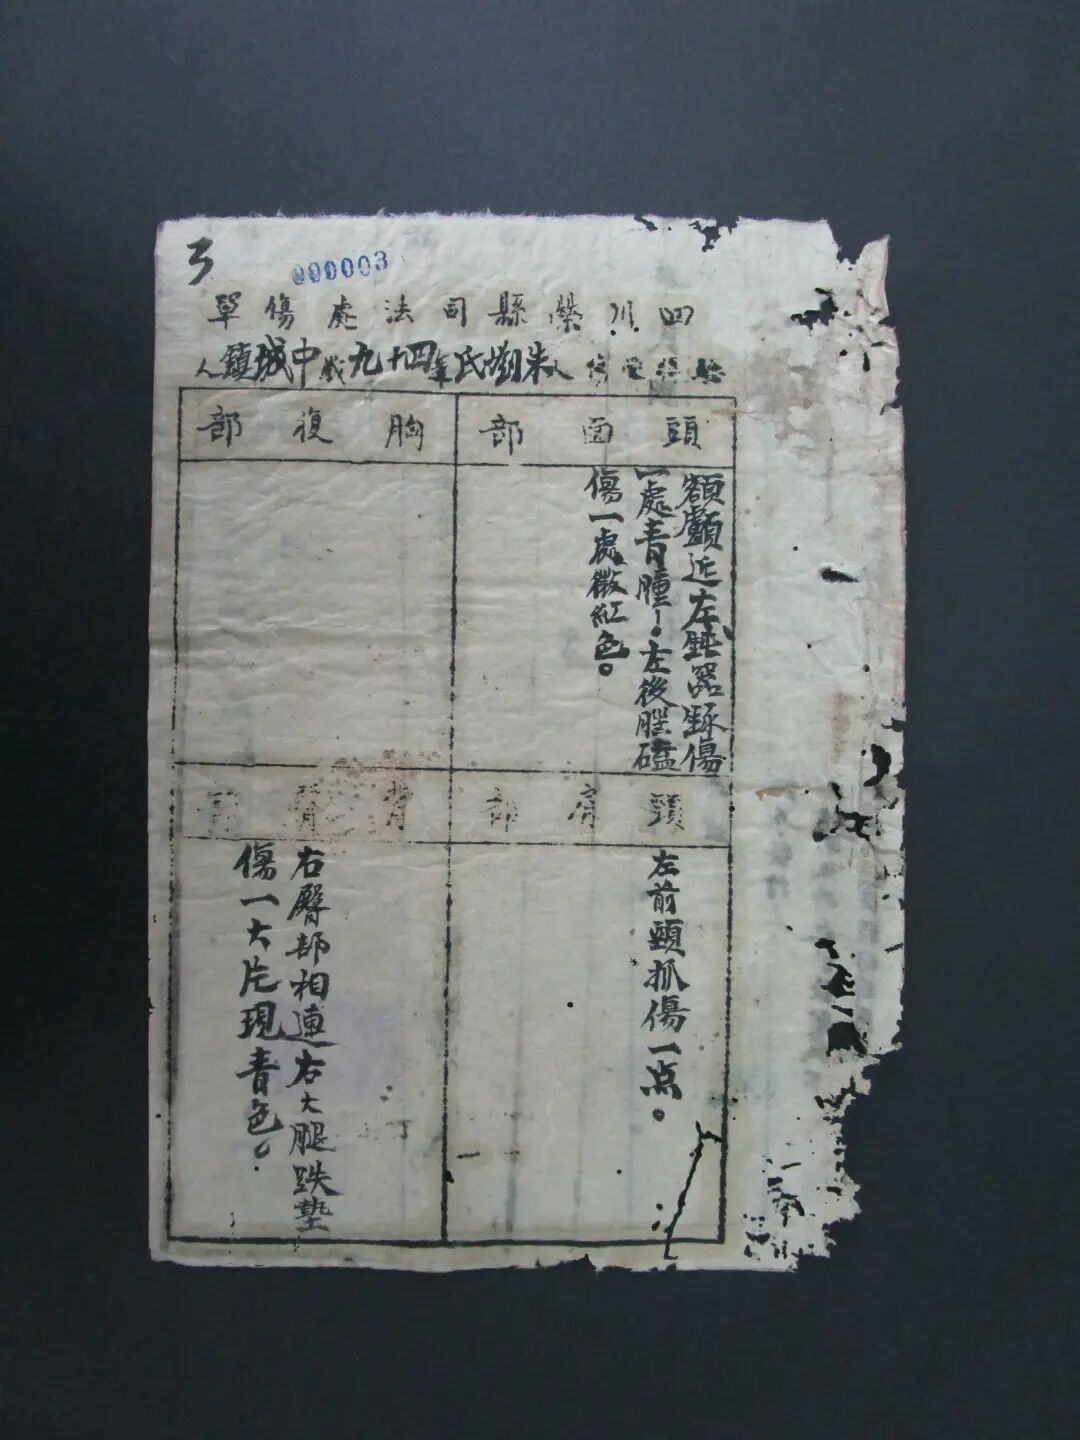 000003
四川榮縣司法處傷單
驗得受傷人朱劉氏年四十九歲中城鎮人
頭面部
額顱近左鈍器𨧱傷
一處青腫。左後腦磕
傷一處微紅色。
胸復部
頸肩部
左前頸抓傷一点。
背臀部
右臀部相連右大腿跌墊
傷一大片現青色。